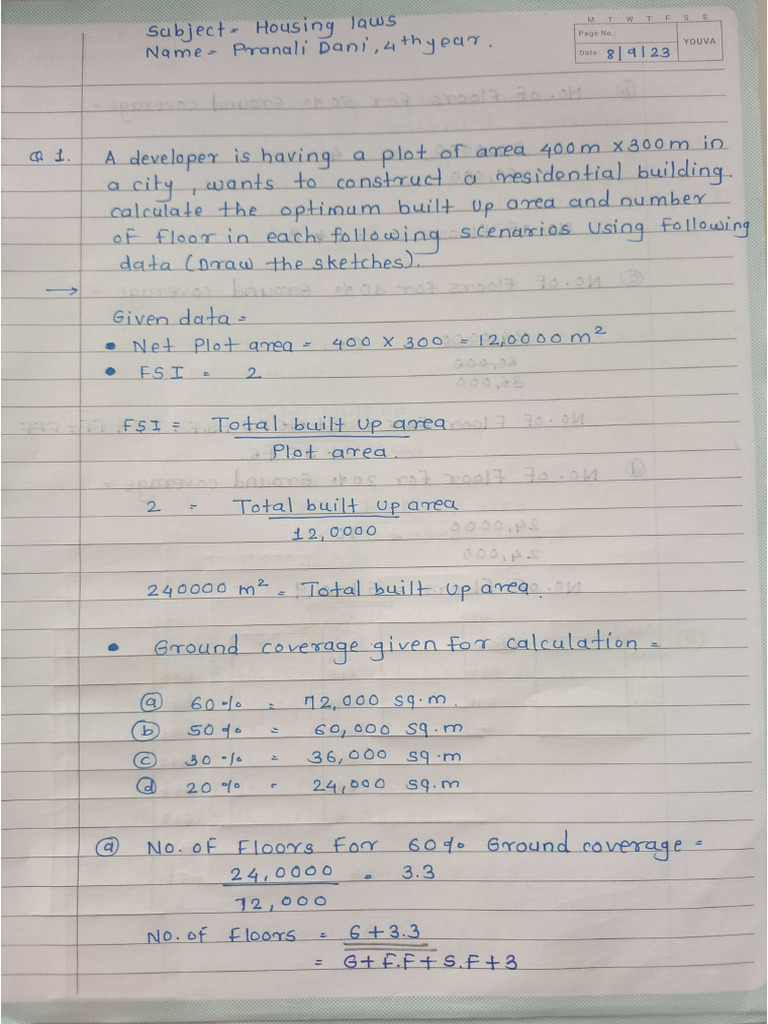 Subject = Housing laws
Name = Pranali Dani, 4th year.
M T W T F S S
Page No.:
Date: 8/9/23
YOUVA
Q 1. A developer is having a plot of area 400m x300m in
a city, wants to construct a residential building.
calculate the optimum built up area and number
of floor in each following scenarios using following
data (Draw the sketches).
→
Given data =
• Net Plot area = 400 x 300 = 12,0000 m²
• FSI = 2
FSI = Total built up area
Plot area.
2 = Total built up area
12,0000
240000 m² = Total built up area.
• Ground coverage given for calculation =
ⓐ 60% = 72,000 sq.m.
ⓑ 50% = 60,000 sq.m
ⓒ 30% = 36,000 sq.m
ⓓ 20% = 24,000 sq.m
ⓐ No. of Floors for 60% Ground coverage =
24,0000 = 3.3
72,000
No. of floors = G+3.3
= G+F.F+S.F+3